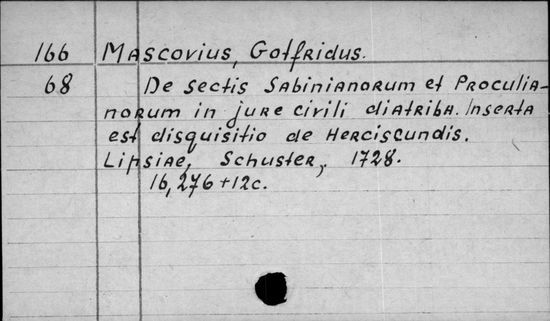 166 Mascovius, Gotfridus.
68 De sectis Sabinianorum et Proculia-
norum in jure civili diatriba. Inserta
est disquisitio de Herciscundis.
Lipsiae, Schuster, 1728.
16, 276+12c.